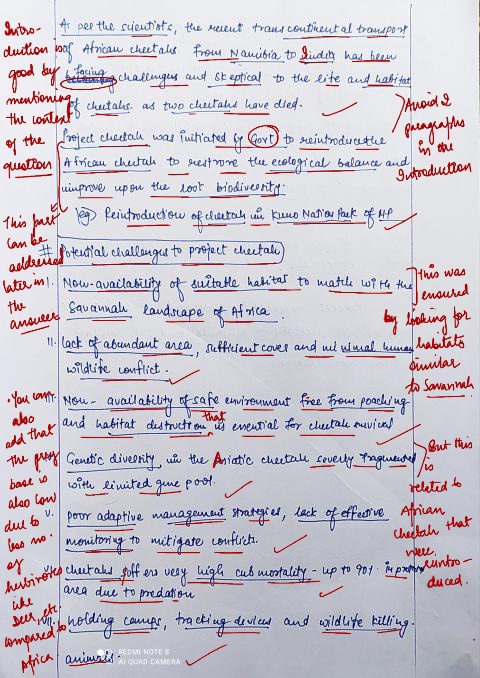 As per the scientists, the recent trans continental transport
of African cheetahs from Namibia to India has been
facing challenges and skeptical to the life and habitat
of cheetahs. as two cheetahs have died.
Project cheetah was initiated by Govt to reintroduce the
African cheetah to restrore the ecological balance and
improve upon the lost biodiversity.
eg) Reintroduction of cheetah in Kuno Nation Park of MP
# Potential challenges to project cheetah
I. Non-availability of suitable habitat to match with the
Savannah landscape of Africa.
II. lack of abundant area, sufficient cover and
wildlife conflict.
Non-availability of safe environment free from poaching
and habitat destruction that is essential for cheetah survical
Genetic diversity in the Asiatic cheetah severly fragmented
with limited gene pool.
v. poor adaptive management strategies, lack of effective
monitoring to mitigate conflicts.
cheetahs offers very high cub mortality - up to 90% in protected
area due to predation
holding camps, tracking devices and wildlife killing.
animals.
Intro-
duction is
good by
mentioning
the context
of the
question
This part
can be
addressed
later in
the
answer
You can
also
add that
the prey
base is
also low
due to
less no.
of
herbivores
like
Deer, etc.
compared to
Africa
Avoid 2
paragraphs
in the
Introduction
This was
ensured
by looking for
habitats
similar
to Savannah.
But this
is
related to
African
cheetah that
were
reintro-
duced.
REDMI NOTE 8
AI QUAD CAMERA